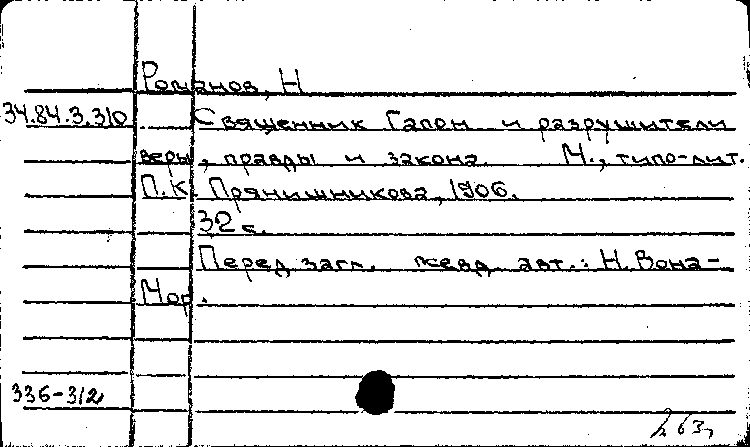 Романов, Н
34.84.3.310 Священник Гапон и разрушители
веры, правды и закона. М., типо-лит.
П.К. Прянишникова, 1906.
32 с.
Перед загл. псевд. авт.: Н. Вона-
Мор.
336-312